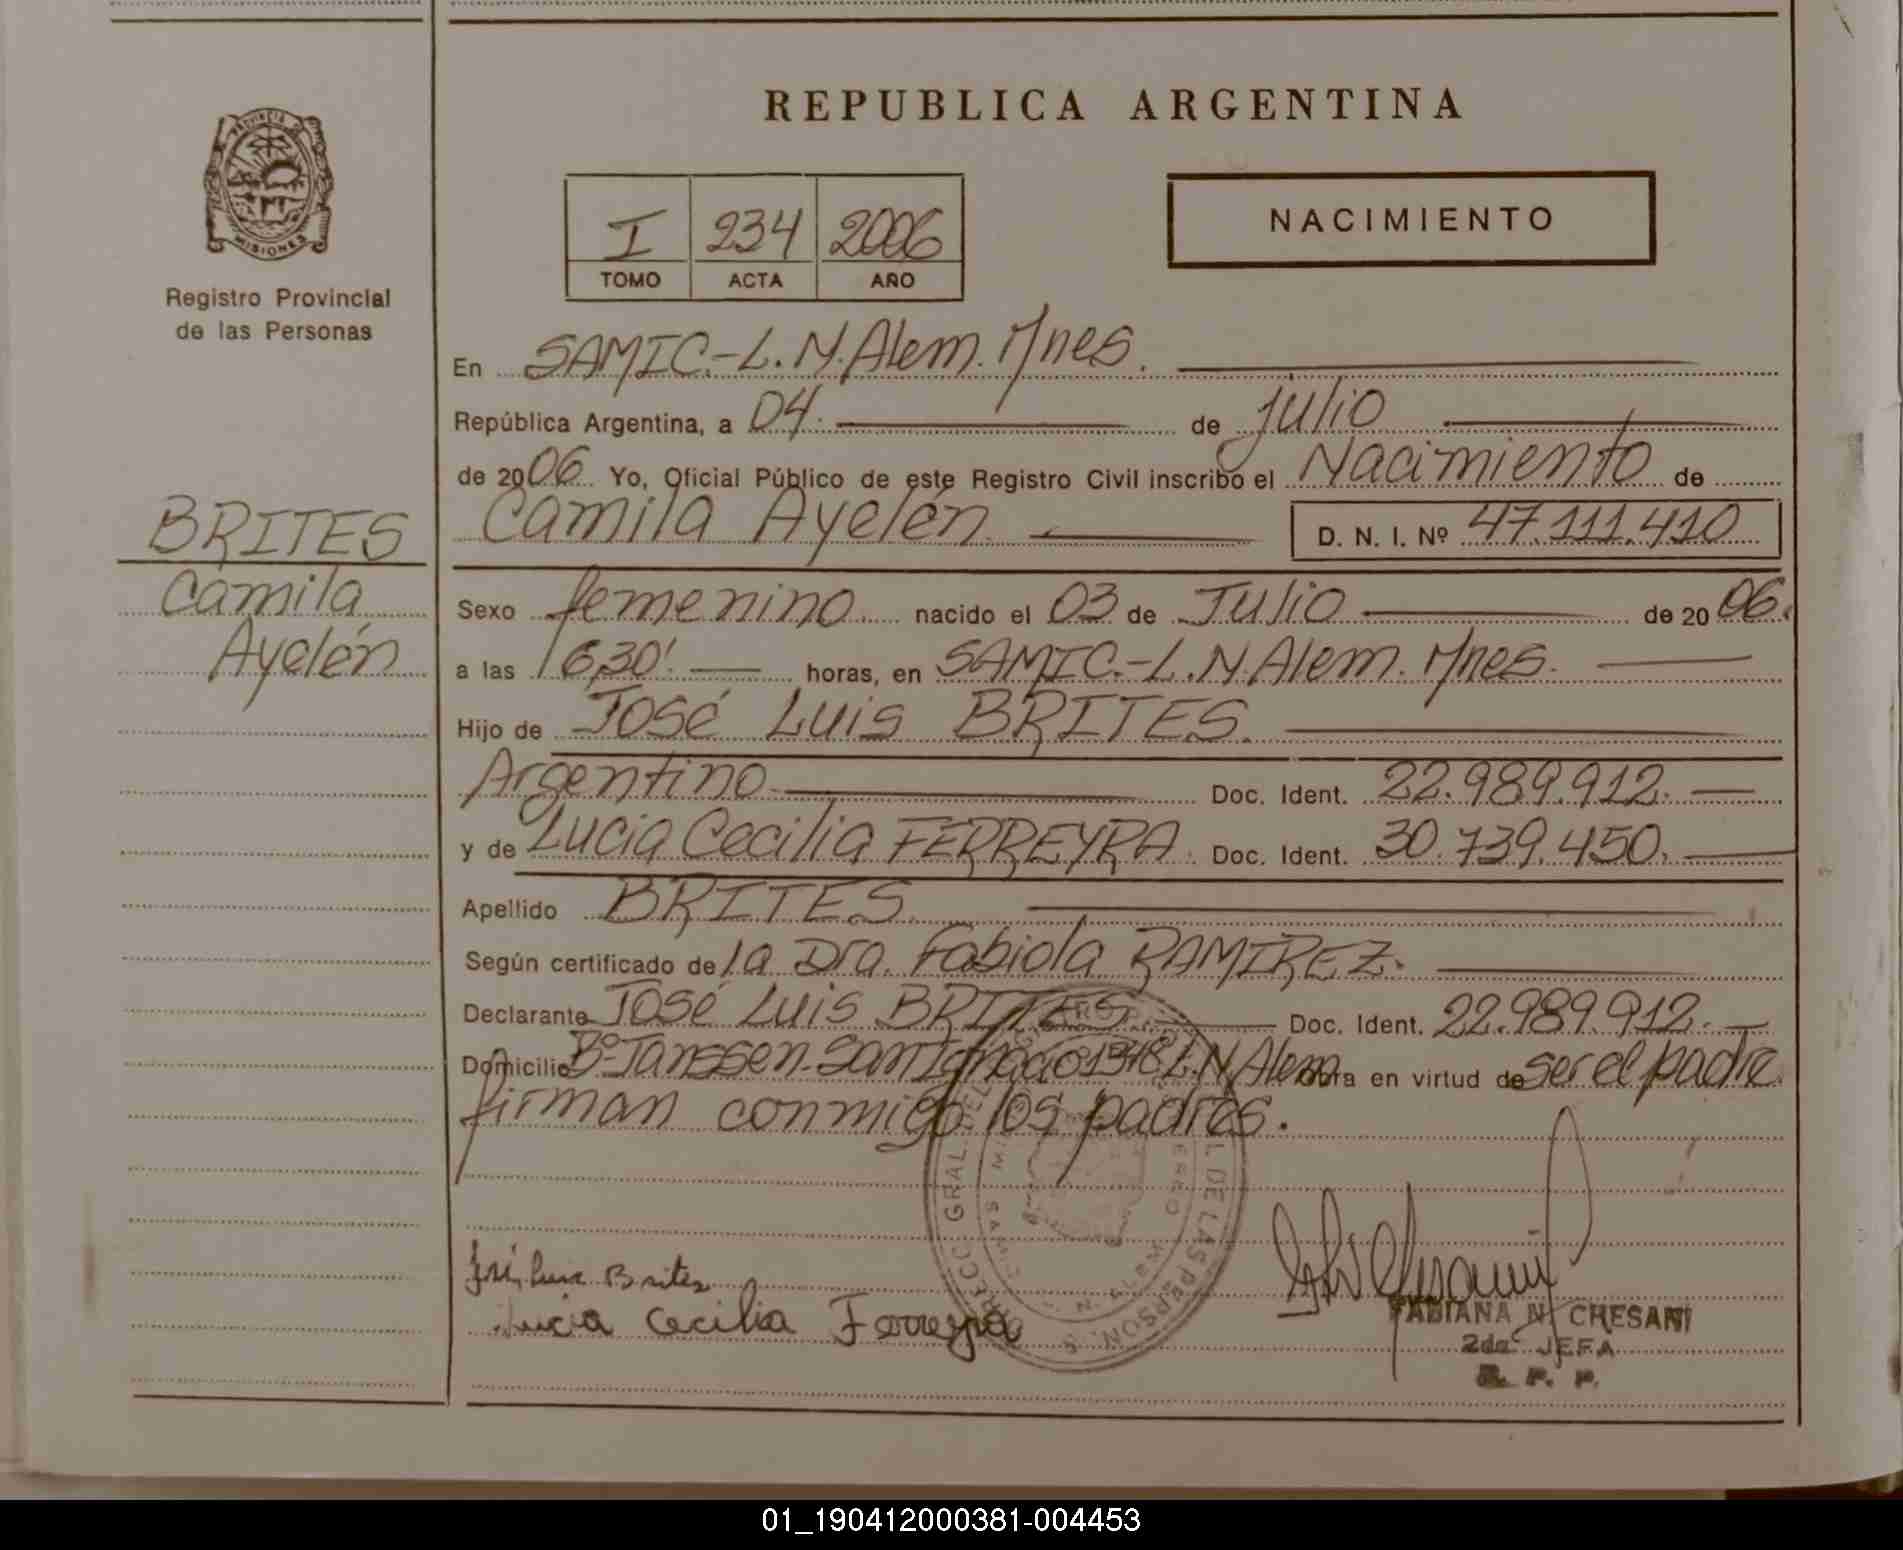 REPUBLICA ARGENTINA
PROVINCIA DE
MISIONES
Registro Provincial
de las Personas
I 234 2006
TOMO ACTA AÑO
NACIMIENTO
BRITES
Camila
Ayelén
En SAMIC.-L.N.Alem. Mnes.
República Argentina, a 04. de julio
de 2006 Yo, Oficial Público de este Registro Civil inscribo el Nacimiento de
Camila Ayelén D. N. I. Nº 47.111.410
Sexo femenino nacido el 03 de Julio de 2006.
a las 16,30' horas, en SAMIC.-L.N.Alem. Mnes.
Hijo de José Luis BRITES.
Argentino Doc. Ident. 22.989.912.
y de Lucia Cecilia FERREYRA. Doc. Ident. 30.739.450.
Apellido BRITES
Según certificado de la Dra. Fabiola RAMIREZ.
Declarante José Luis BRITES Doc. Ident. 22.989.912.
Domicilio Bº Janssen-San Ignacio 1348 L.N.Alem obra en virtud de ser el padre
firman conmigo los padres.
José Luis Brites
Lucia Cecilia Ferreyra
GRAL DEL DE LAS PERSONAS
FABIANA N. CHESANI
2da JEFA
R. P. P.
01_190412000381-004453